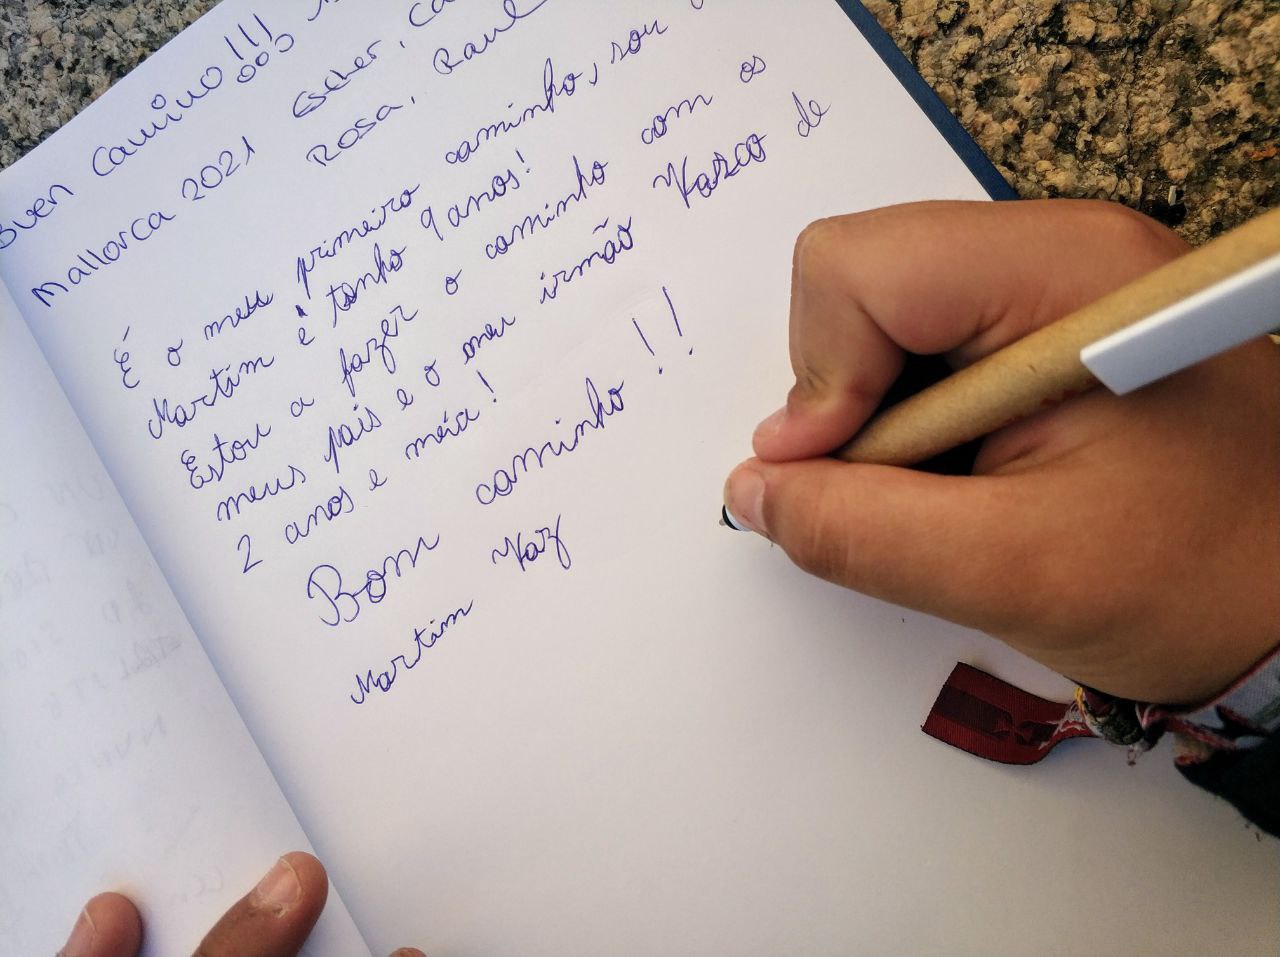 Buen Camino!!!
Mallorca 2021 Esther,
Rosa, Raul
É o meu primeiro caminho, sou
Martim e tenho 9 anos!
Estou a fazer o caminho com os
meus pais e o meu irmão Vasco de
2 anos e meia!
Bom caminho!!
Martim Vaz